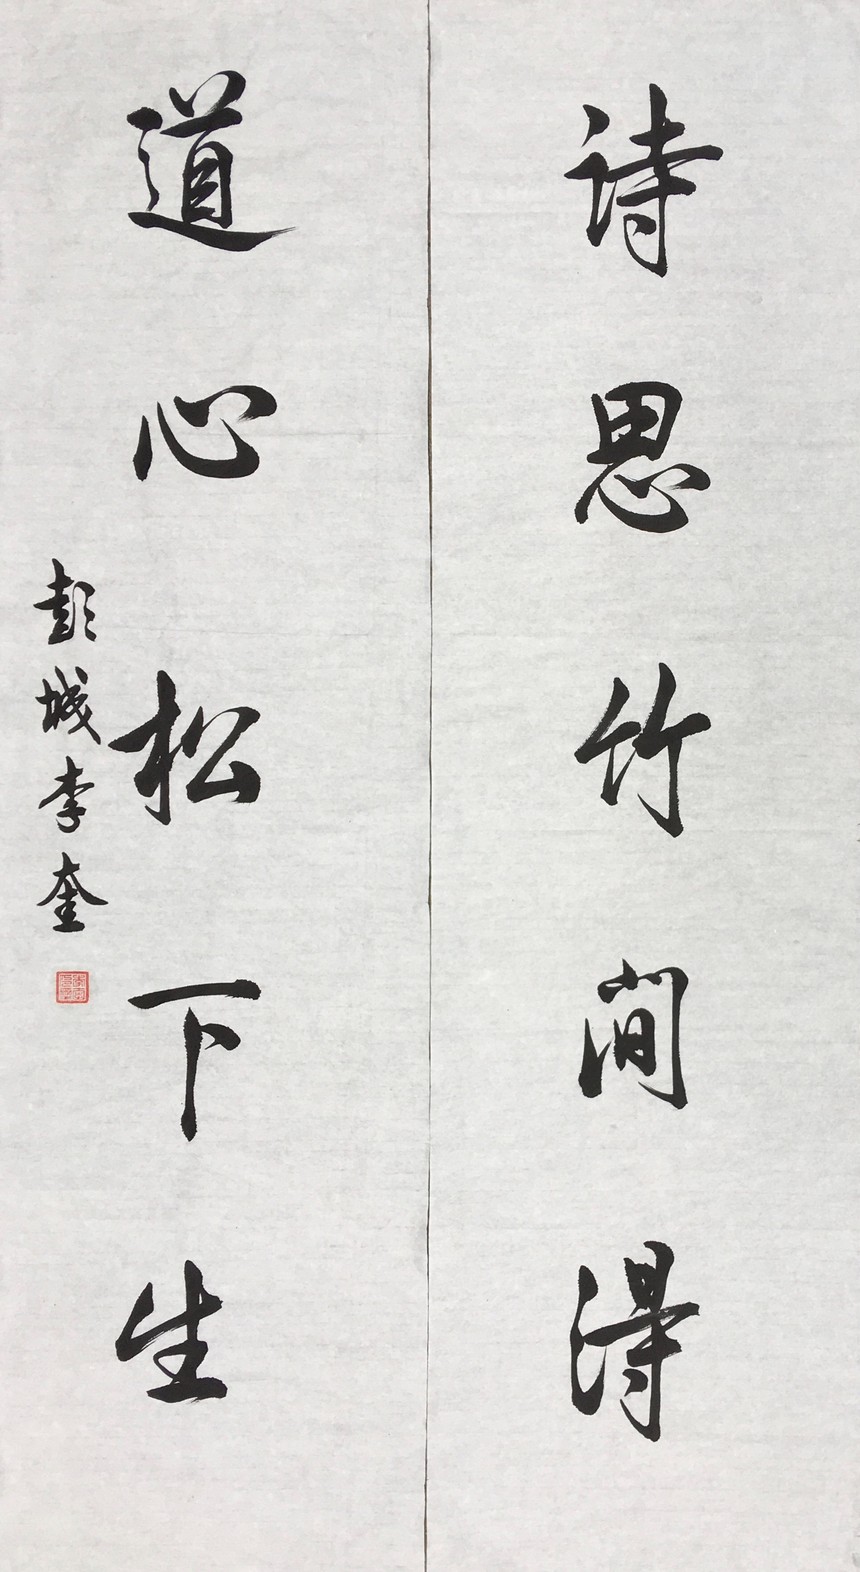 诗思竹间得
道心松下生
彭城李奎